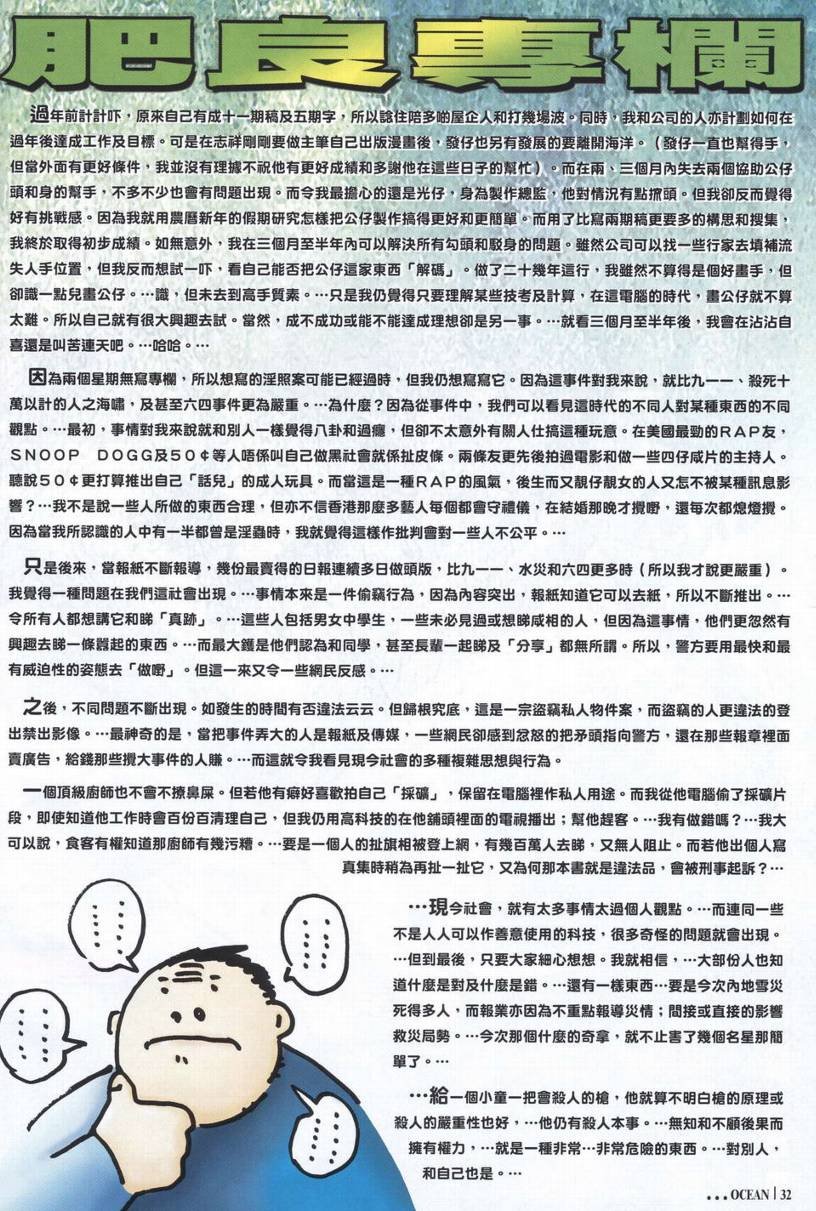 肥良專欄
過年前計計吓，原來自己有成十一期稿及五期字，所以諗住陪多啲屋企人和打幾場波。同時，我和公司的人亦計劃如何在
過年後達成工作及目標。可是在志祥剛剛要做主筆自己出版漫畫後，發仔也另有發展的要離開海洋。（發仔一直也幫得手，
但當外面有更好條件，我並沒有理據不祝他有更好成績和多謝他在這些日子的幫忙）。而在兩、三個月內失去兩個協助公仔
頭和身的幫手，不多不少也會有問題出現。而令我最擔心的還是光仔，身為製作總監，他對情況有點㨘頭。但我卻反而覺得
好有挑戰感。因為我就用農曆新年的假期研究怎樣把公仔製作搞得更好和更簡單。而用了比寫兩期稿更要多的構思和搜集，
我終於取得初步成績。如無意外，我在三個月至半年內可以解決所有勾頭和駁身的問題。雖然公司可以找一些行家去填補流
失人手位置，但我反而想試一吓，看自己能否把公仔這家東西「解碼」。做了二十幾年這行，我雖然不算得是個好畫手，但
卻識一點兒畫公仔。…識，但未去到高手質素。…只是我仍覺得只要理解某些技考及計算，在這電腦的時代，畫公仔就不算
太難。所以自己就有很大興趣去試。當然，成不成功或能不能達成理想卻是另一事。…就看三個月至半年後，我會在沾沾自
喜還是叫苦連天吧。…哈哈。…
因為兩個星期無寫專欄，所以想寫的淫照案可能已經過時，但我仍想寫寫它。因為這事件對我來說，就比九一一、殺死十
萬以計的人之海嘯，及甚至六四事件更為嚴重。…為什麼？因為從事件中，我們可以看見這時代的不同人對某種東西的不同
觀點。…最初，事情對我來說就和別人一樣覺得八卦和過癮，但卻不太意外有關人仕搞這種玩意。在美國最勁的ＲＡＰ友，
ＳＮＯＯＰ　ＤＯＧＧ及５０￠等人唔係叫自己做黑社會就係扯皮條。兩條友更先後拍過電影和做一些四仔咸片的主持人。
聽說５０￠更打算推出自己「話兒」的成人玩具。而當這是一種ＲＡＰ的風氣，後生而又靚仔靚女的人又怎不被某種訊息影
響？…我不是說一些人所做的東西合理，但亦不信香港那麼多藝人每個都會守禮儀，在結婚那晚才攪嘢，還每次都熄燈攪。
因為當我所認識的人中有一半都曾是淫蟲時，我就覺得這樣作批判會對一些人不公平。…
只是後來，當報紙不斷報導，幾份最賣得的日報連續多日做頭版，比九一一、水災和六四更多時（所以我才說更嚴重）。
我覺得一種問題在我們這社會出現。…事情本來是一件偷竊行為，因為內容突出，報紙知道它可以去紙，所以不斷推出。…
令所有人都想講它和睇「真跡」。…這些人包括男女中學生，一些未必見過或想睇咸相的人，但因為這事情，他們更忽然有
興趣去睇一條囂起的東西。…而最大鑊是他們認為和同學，甚至長輩一起睇及「分享」都無所謂。所以，警方要用最快和最
有威迫性的姿態去「做嘢」。但這一來又令一些網民反感。…
之後，不同問題不斷出現。如發生的時間有否違法云云。但歸根究底，這是一宗盜竊私人物件案，而盜竊的人更違法的登
出禁出影像。…最神奇的是，當把事件弄大的人是報紙及傳媒，一些網民卻感到忿怒的把矛頭指向警方，還在那些報章裡面
賣廣告，給錢那些攪大事件的人賺。…而這就令我看見現今社會的多種複雜思想與行為。
一個頂級廚師也不會不撩鼻屎。但若他有癖好喜歡拍自己「採礦」，保留在電腦裡作私人用途。而我從他電腦偷了採礦片
段，即使知道他工作時會百份百清理自己，但我仍用高科技的在他舖頭裡面的電視播出；幫他趕客。…我有做錯嗎？…我大
可以說，食客有權知道那廚師有幾污糟。…要是一個人的扯旗相被登上網，有幾百萬人去睇，又無人阻止。而若他出個人寫
真集時稍為再扯一扯它，又為何那本書就是違法品，會被刑事起訴？…
…現今社會，就有太多事情太過個人觀點。…而連同一些
不是人人可以作善意使用的科技，很多奇怪的問題就會出現。
…但到最後，只要大家細心想想。我就相信，…大部份人也知
道什麼是對及什麼是錯。…還有一樣東西…要是今次內地雪災
死得多人，而報業亦因為不重點報導災情；間接或直接的影響
救災局勢。…今次那個什麼的奇拿，就不止害了幾個名星那簡
單了。…
…給一個小童一把會殺人的槍，他就算不明白槍的原理或
殺人的嚴重性也好，…他仍有殺人本事。…無知和不顧後果而
擁有權力，…就是一種非常…非常危險的東西。…對別人，
和自己也是。…
...OCEAN | 32